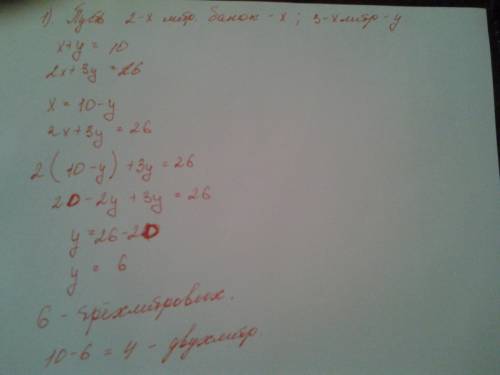 1). Пусть 2-х литр. банок - х ; 3-х литр - у
х+у = 10
2х+3у = 26
х = 10-у
2х+3у = 26
2(10-у) +3у = 26
20-2у +3у = 26
у = 26-20
у = 6
6 - трёхлитровых.
10-6 = 4 - двухлитр.